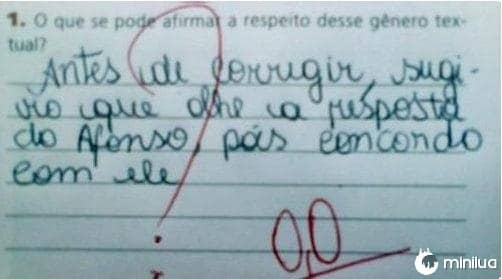 1. O que se pode afirmar a respeito desse gênero tex-
tual?
Antes de corrugir, sugi-
ro que olhe a resposta
do Afonso, pois concordo
com ele
0,0
minilua